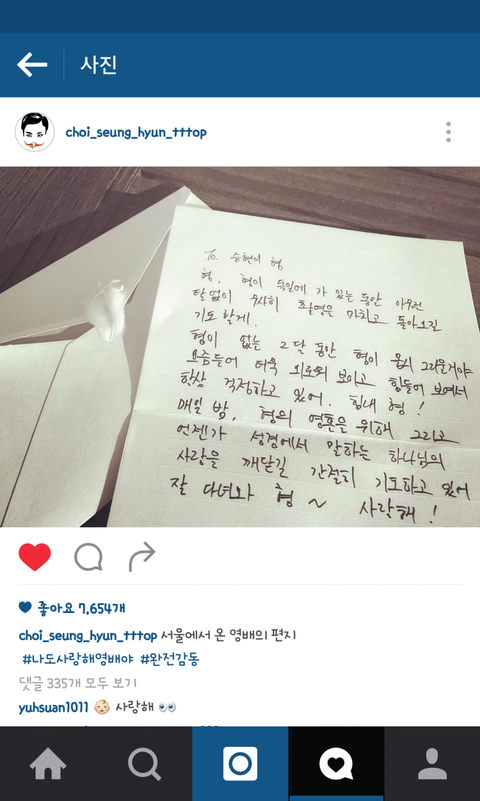 사진
choi_seung_hyun_tttop
To. 승현이 형
형, 형이 독일에 가 있는 동안 아무런
탈 없이 무사히 촬영을 마치고 돌아오길
기도할게.
형이 없는 2달 동안 형이 몹시 그리울거야
요즘들어 더욱 외로워 보이고 힘들어 보여서
항상 걱정하고 있어. 힘내 형!
매일 밤, 형의 영혼을 위해 그리고
언젠가 성경에서 말하는 하나님의
사랑을 깨닫길 간절히 기도하고 있어
잘 다녀와 형~ 사랑해!
좋아요 7,654개
choi_seung_hyun_tttop 서울에서 온 영배의 편지
#나도사랑해영배야 #완전감동
댓글 335개 모두 보기
yuhsuan1011 👶 사랑해 👀